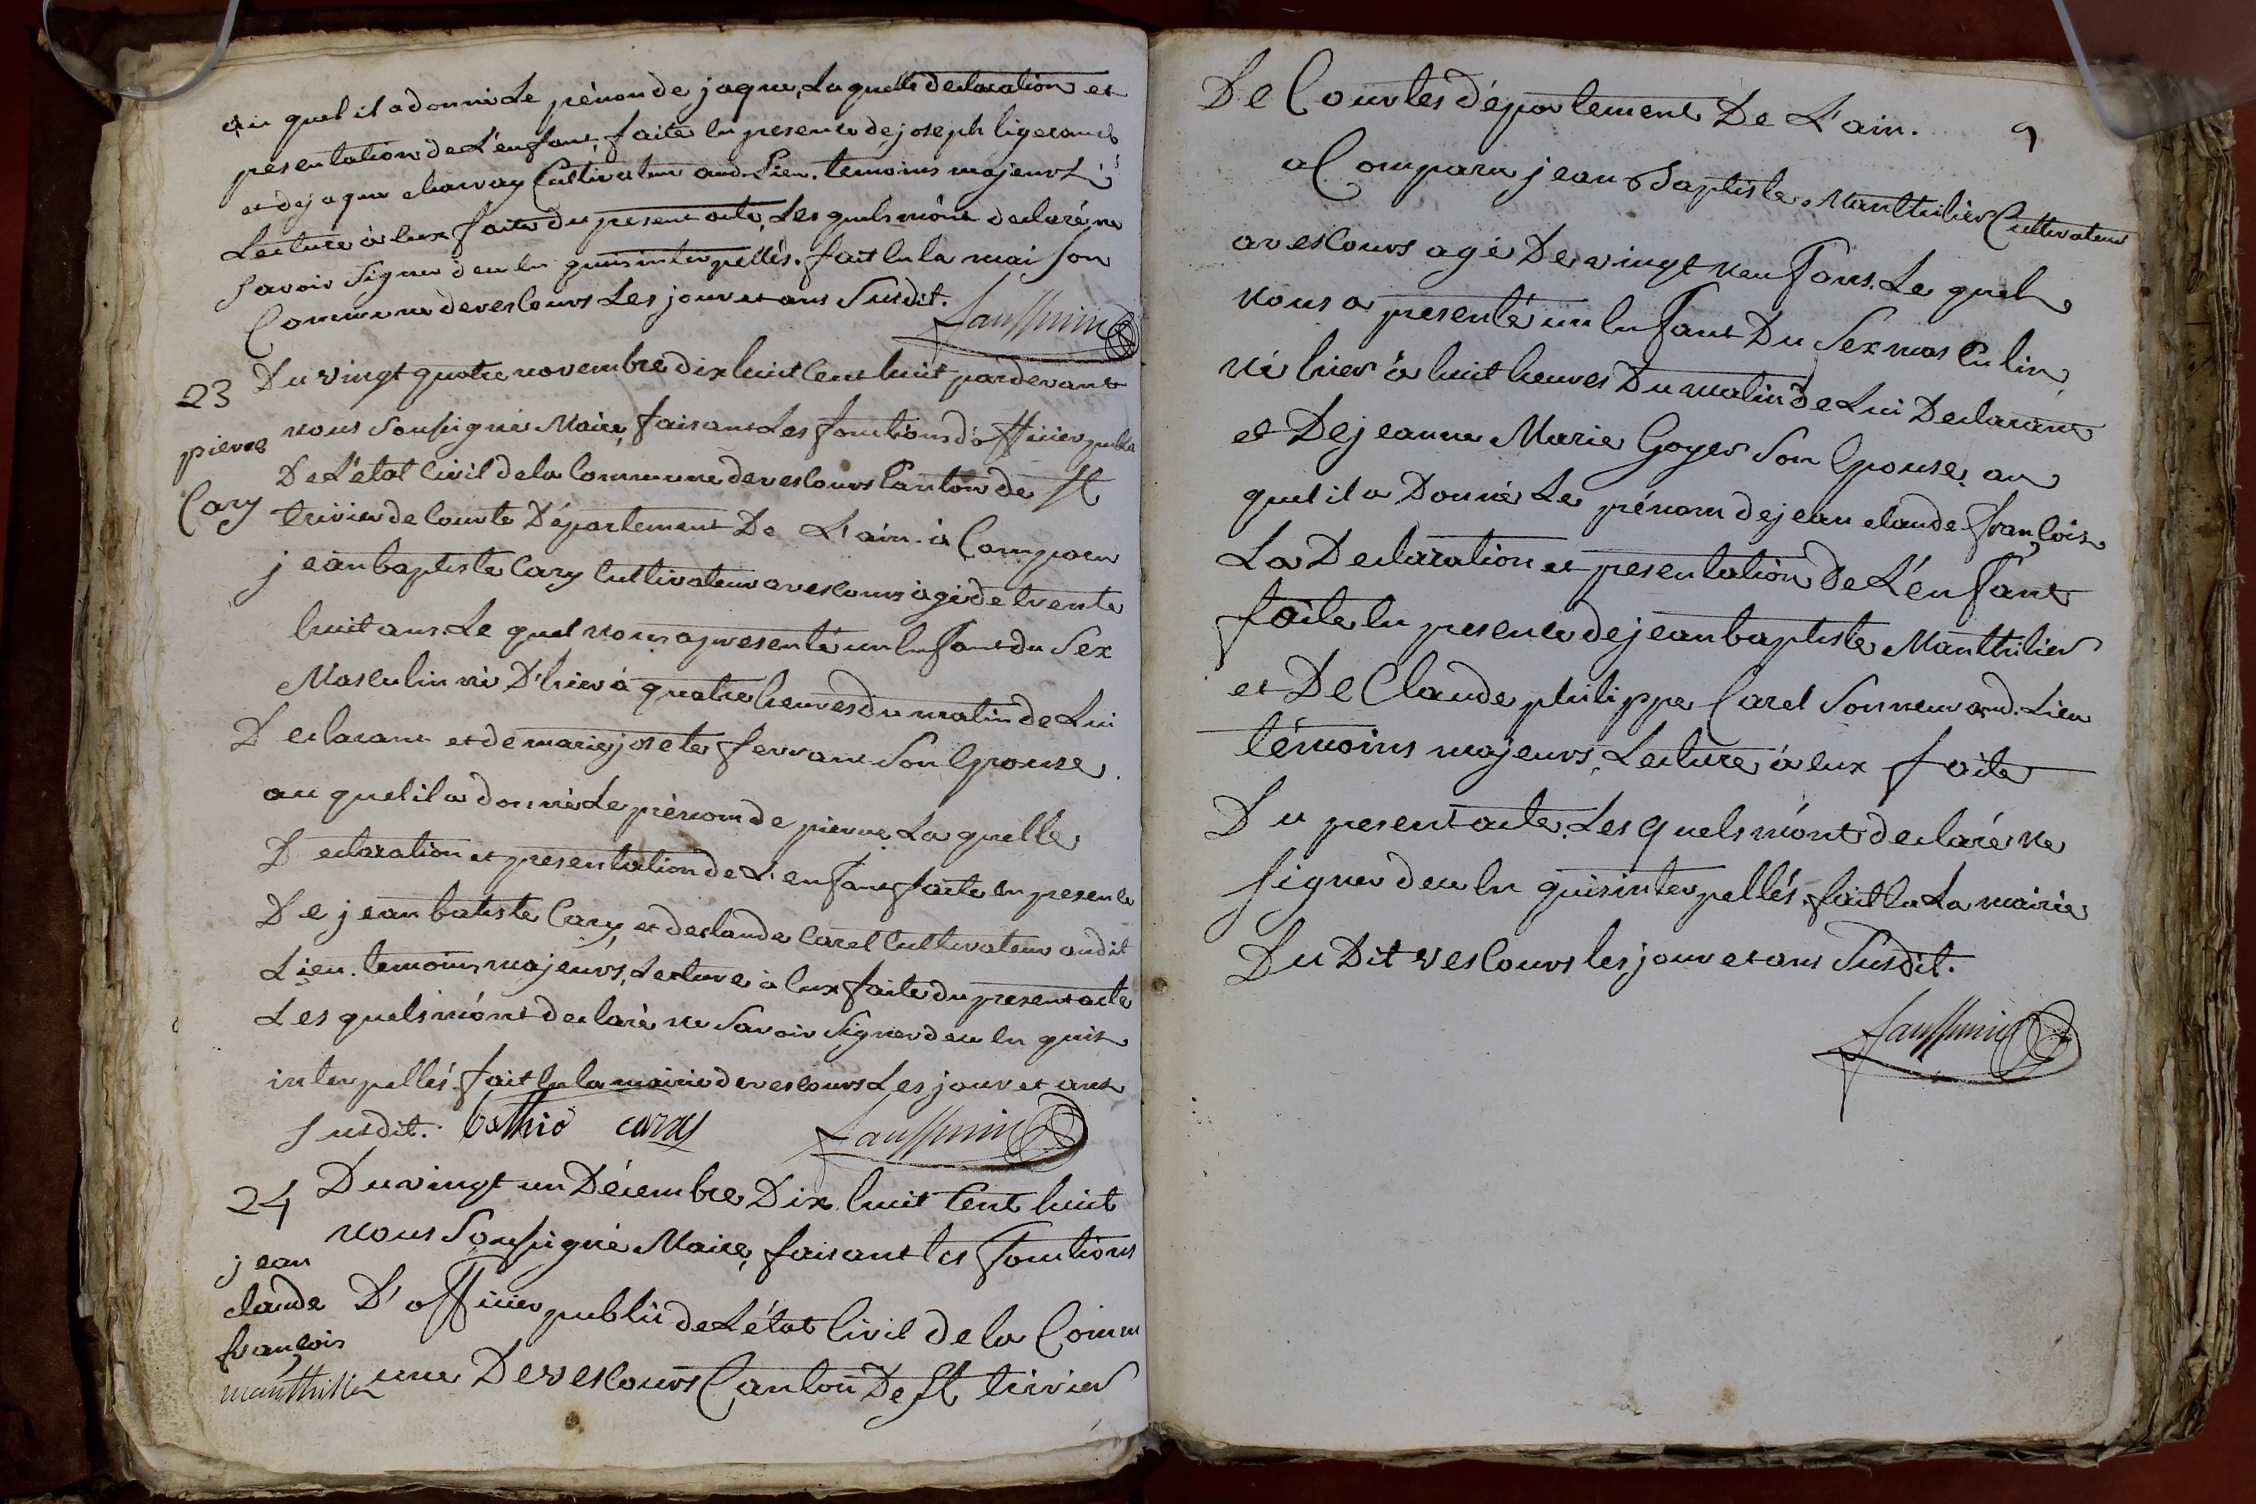 au quel il a donné Le prénom de jaque, Laquelle declaration et
présentation de L'enfant, faite En presence de joseph ligerand
et de jaque charvay Cultivateur aud. Lieu. temoins majeurs
Lecture à Eux faite du present acte, Les quels m'ont declaré ne
savoir signer dece En quis interpellés. fait En la maison
Commune de vescours Les jour et ans Susdit.
23 Du vingt quatre novembre dix huit Cent huit pardevant
nous Soussigné Maire, faisant Les fonctions d'officier public
pierre
De L'état Civil de la Commune de vescours Canton de St
Cary
trivier de Courte Département De L'ain. à Comparu
jean baptiste Cary Cultivateur a vescours agé de trente
huit ans. Le quel nous a presenté un Enfant du Sex
Masculin né D'hier à quatre heures du matin de Lui
Declarant et de marie josete ferrant Son Epouse
au quel il a donné Le prénom de pierre, La quelle
Declaration et presentation de L'enfant faite En presence
De jean batiste Cary, et de claude Carel Cultivateur audit
Lieu. temoins majeurs, Lecture à Eux faite du present acte
Les quels m'ont declaré ne Savoir Signer dece En quis
interpellés. fait En la mairie de vescours Les jour et ans
Susdit. carry
24 Du vingt un Décembre Dix huit Cent huit
nous Soussigné Maire, faisant les fonctions
jean
claude D'officier public de L'état Civil de la Comm
françois
manthillier une De vescours Canton De St trivier
De Courtes département De L'ain. 9
a Comparu jean Baptiste Manthilier Cultivateur
a vescours agé De vingt neuf ans. Le quel
nous a presenté un Enfant Du Sex masculin
né hier à huit heures Du matin de Lui Declarant
et De jeanne Marie Goyer Son Epouse, au
quel il a Donné Le prénom de jean claude françois
La Declaration et presentation de L'enfant
faite En presence de jean baptiste Manthilier
et De Claude philippe Carel Sonneur aud. Lieu
témoins majeurs, Lecture à Eux faite
Du present acte. Les quels m'ont declaré ne
signer dece En quis interpellés. fait En La mairie
Du Dit vescours les jour et ans Susdit.